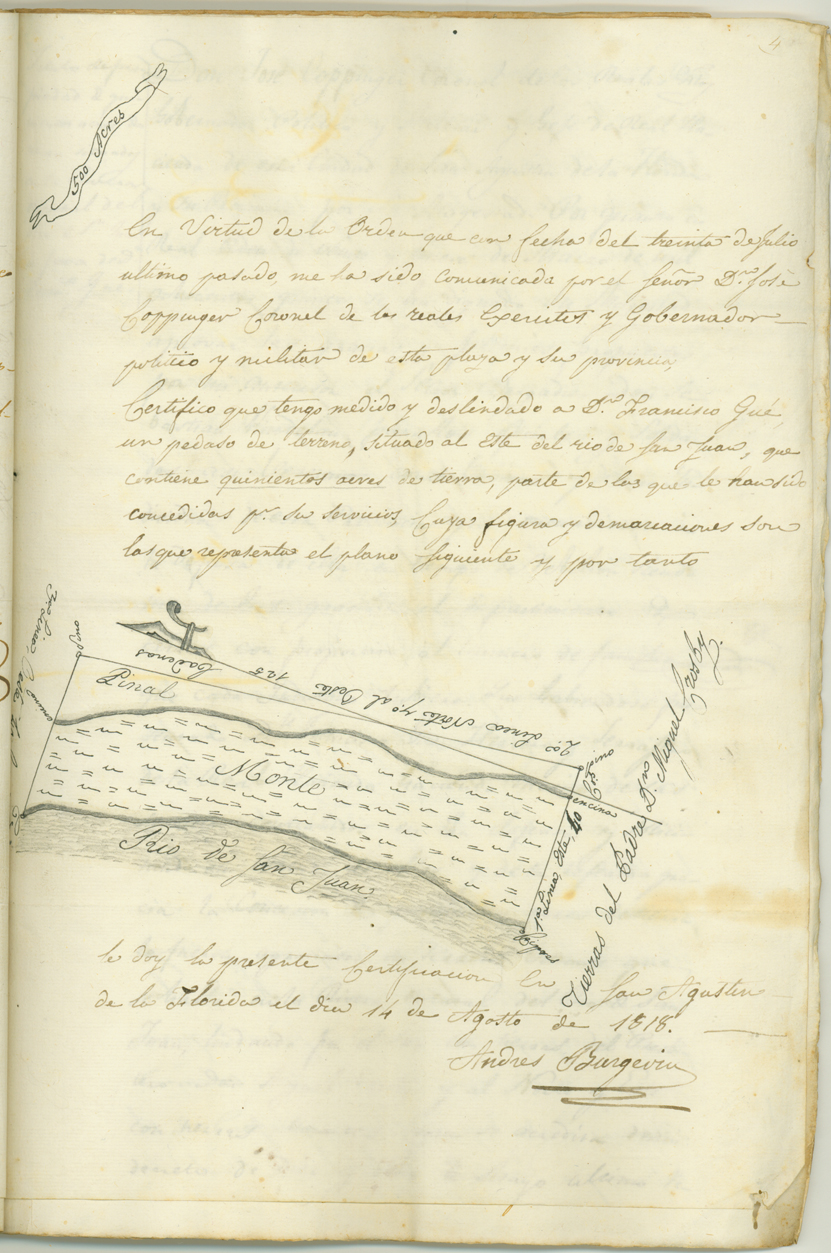 500 Acres
En Virtud de la Orden que con fecha del treinta de Julio
ultimo pasado, me ha sido comunicada por el Señor Dn. José
Coppinger Coronel de los reales Exercitos y Gobernador
politico y militar de esta plaza y su provincia,
Certifico que tengo medido y deslindado a Dn. Francisco Gué,
un pedaso de terreno, situado al Este del rio de San Juan, que
contiene quinientos acres de tierra, parte de los que le han sido
concedidas pr. su servicios, Cuya figura y demarcaciones son
las que representa el plano siguiente y por tanto
3ra. Linea, Oeste
pino
2da. Linea Norte 40 al Oeste 125 Cadenas
Pinal
Monte
Rio de San Juan
pino
encina
1ra. Linea, Este, 40
Tierras del Padre Dn. Miguel Crosby
le doy la presente Certificacion En San Agustin
de la Florida el dia 14 de Agosto de 1818.
Andres Burgevin